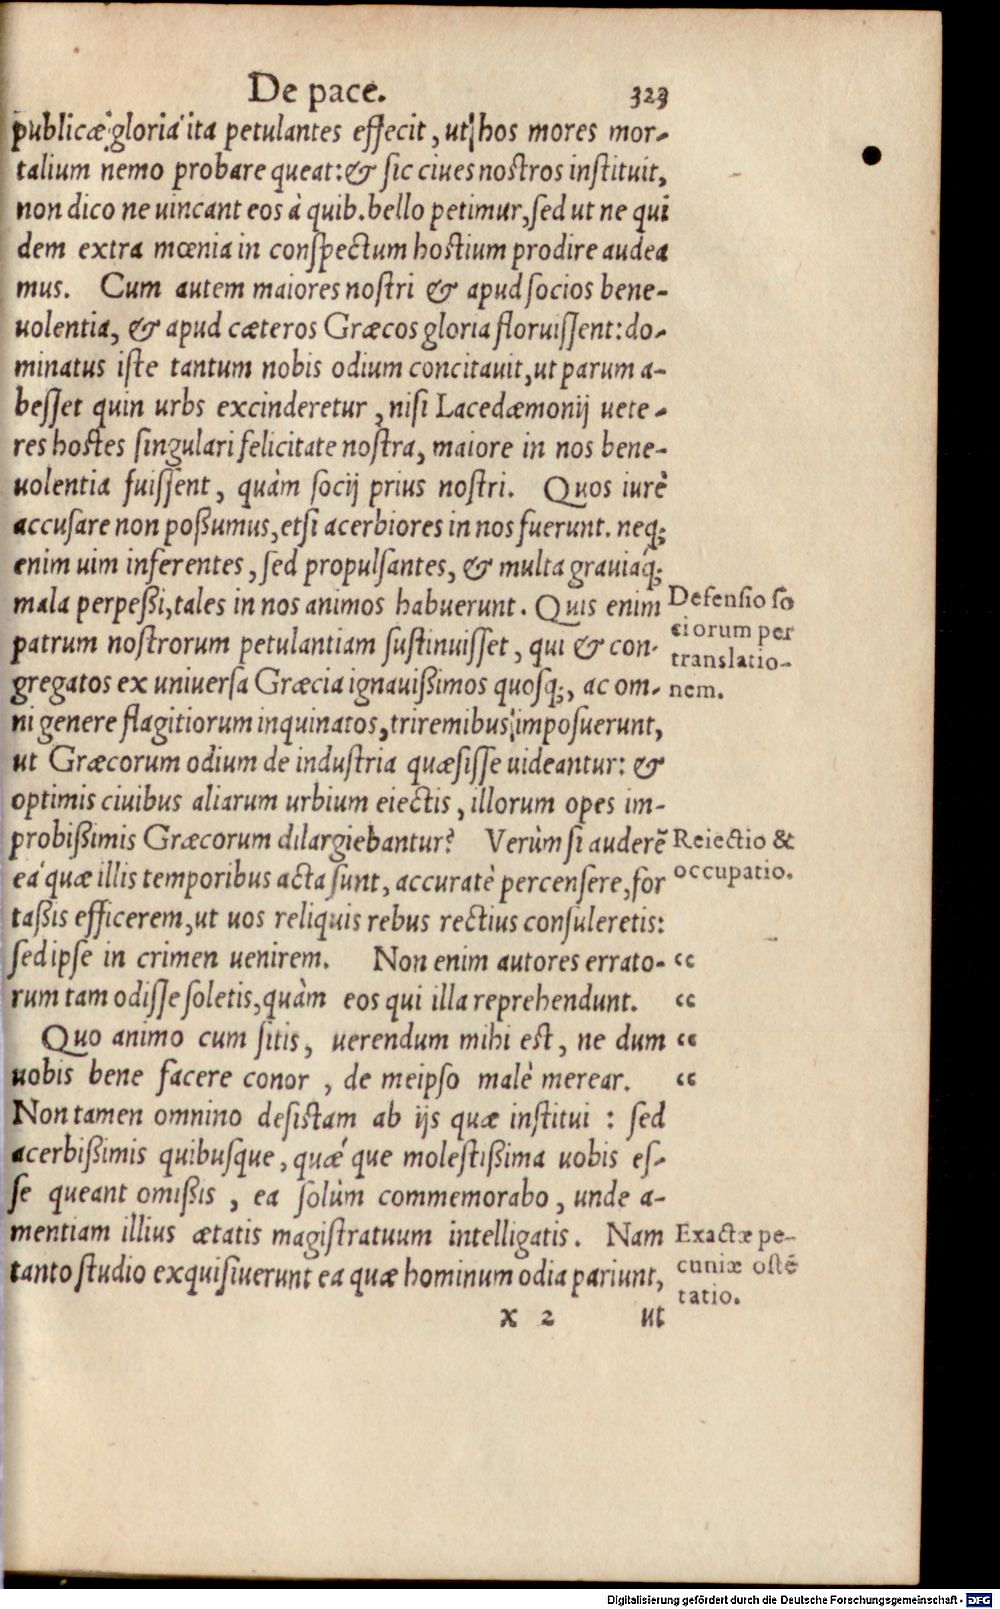 De pace. 323
publicæ gloria ita petulantes effecit, ut hos mores mor-
talium nemo probare queat: & sic ciues nostros instituit,
non dico ne uincant eos à quib. bello petimur, sed ut ne qui
dem extra mœnia in conspectum hostium prodire audea
mus. Cum autem maiores nostri & apud socios bene-
uolentia, & apud cæteros Græcos gloria floruissent: do-
minatus iste tantum nobis odium concitauit, ut parum a-
besset quin urbs excinderetur, nisi Lacedæmonij uete-
res hostes singulari felicitate nostra, maiore in nos bene-
uolentia fuissent, quàm socij prius nostri. Quos iurè
accusare non poßumus, etsi acerbiores in nos fuerunt. neq;
enim uim inferentes, sed propulsantes, & multa grauiaq́;
mala perpeßi, tales in nos animos habuerunt. Quis enim
Defensio so
patrum nostrorum petulantiam sustinuisset, qui & con-
ciorum per
translatio-
gregatos ex uniuersa Græcia ignauißimos quosq;, ac om-
nem.
ni genere flagitiorum inquinatos, triremibus imposuerunt,
ut Græcorum odium de industria quæsisse uideantur: &
optimis ciuibus aliarum urbium eiectis, illorum opes im-
probißimis Græcorum dilargiebantur? Verùm si auderē
Reiectio &
ea quæ illis temporibus acta sunt, accuratè percensere, for
occupatio.
taßis efficerem, ut uos reliquis rebus rectius consuleretis:
sed ipse in crimen uenirem. Non enim autores errato- “
rum tam odisse soletis, quàm eos qui illa reprehendunt. “
Quo animo cum sitis, uerendum mihi est, ne dum “
uobis bene facere conor, de meipso malè merear. “
Non tamen omnino desistam ab ijs quæ institui: sed
acerbißimis quibusque, quǽ que molestißima uobis es-
se queant omißis, ea solùm commemorabo, unde a-
mentiam illius ætatis magistratuum intelligatis. Nam
Exactæ pe-
cuniæ ostē
tanto studio exquisiuerunt ea quæ hominum odia pariunt,
tatio.
x 2 ut
Digitalisierung gefördert durch die Deutsche Forschungsgemeinschaft - DFG